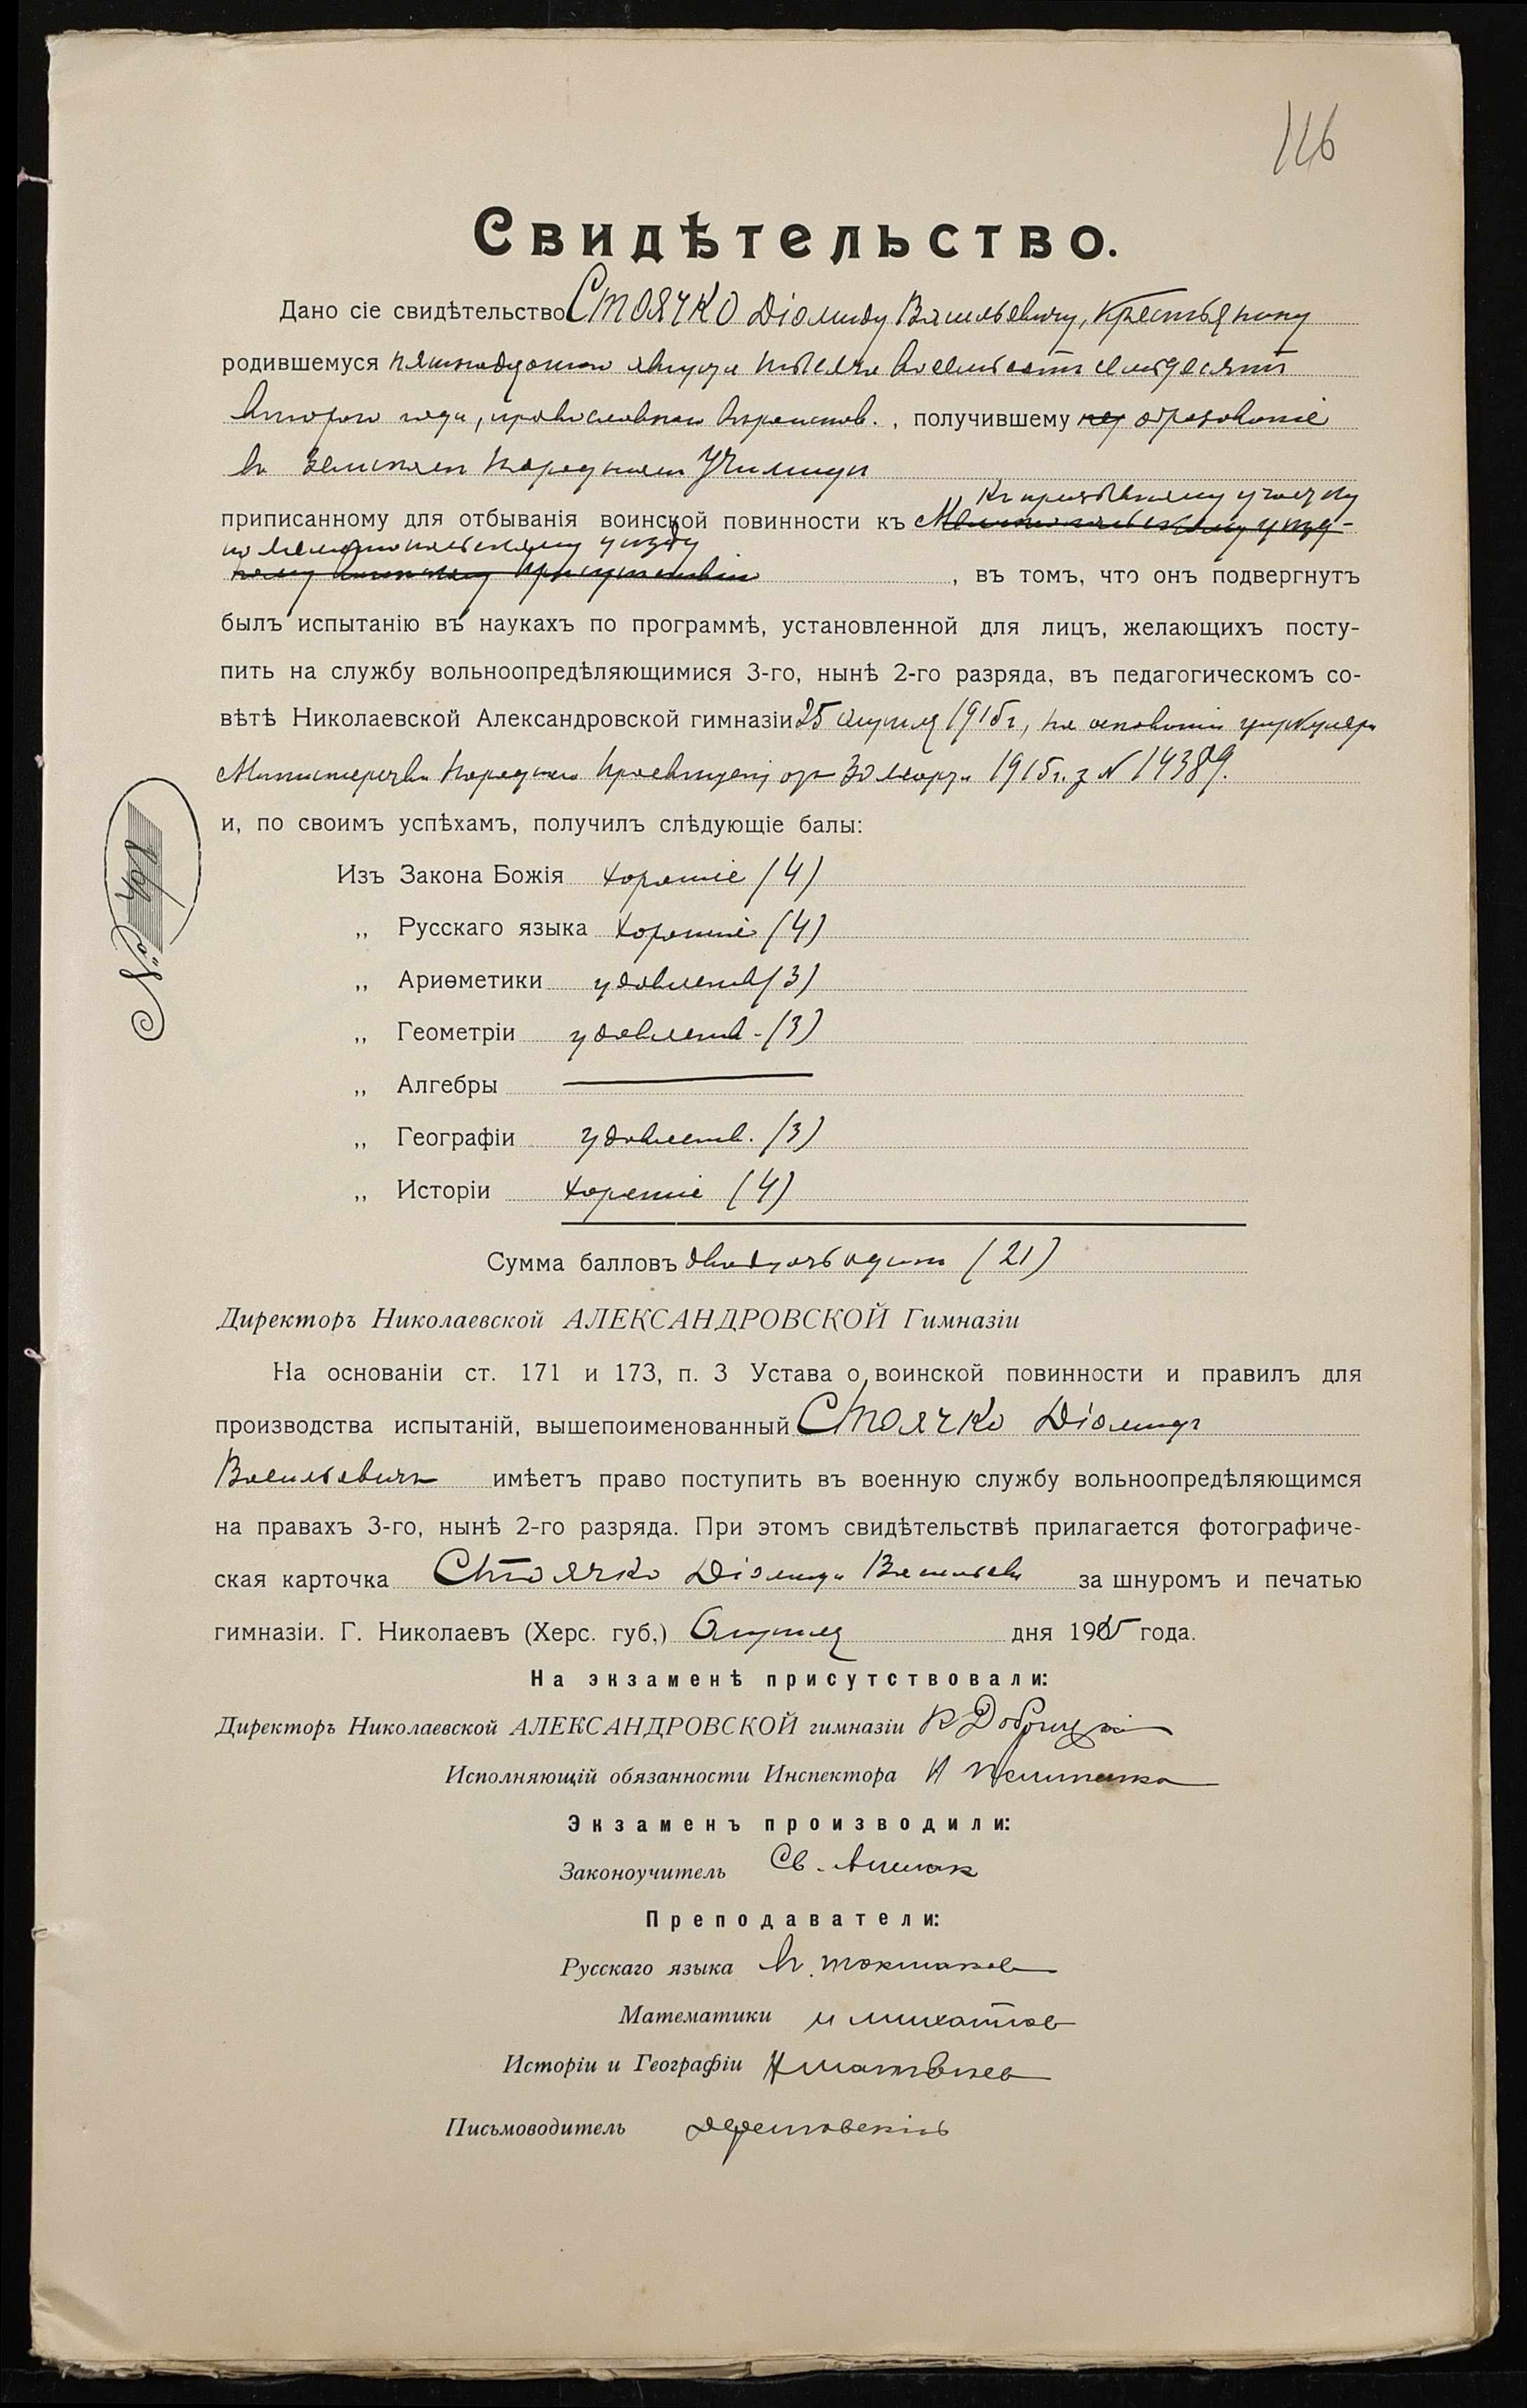 116
Свидѣтельство.
Дано сіе свидѣтельство Стоячко Діомиду Васильевичу, крестьянину
родившемуся пятнадцатого августа тысяча восемьсотъ семьдесятъ
второго года, православнаго вѣроисповѣд. , получившему образованіе
въ земскомъ народномъ училищѣ
къ призывному участку
приписанному для отбыванія воинской повинности къ Мелитопольскому уѣзд-
по Мелитопольскому уѣзду
ному воинскому присутствію , въ томъ, что онъ подвергнутъ
былъ испытанію въ наукахъ по программѣ, установленной для лицъ, желающихъ посту-
пить на службу вольноопредѣляющимися 3-го, нынѣ 2-го разряда, въ педагогическомъ со-
вѣтѣ Николаевской Александровской гимназіи 25 апрѣля 1915 г., на основаніи циркуляра
Министерства Народнаго Просвѣщенія отъ 30 марта 1915 г. з № 14389.
и, по своимъ успѣхамъ, получилъ слѣдующіе балы:
Изъ Закона Божія хорошіе (4)
„ Русскаго языка хорошіе (4)
„ Ариѳметики удовлетв (3)
„ Геометріи удовлетв - (3)
„ Алгебры
„ Географіи удовлетв. (3)
„ Исторіи хорошіе (4)
Сумма балловъ двадцать одинъ (21)
Директоръ Николаевской АЛЕКСАНДРОВСКОЙ Гимназіи
На основаніи ст. 171 и 173, п. 3 Устава о воинской повинности и правилъ для
производства испытаній, вышепоименованный Стоячко Діомидъ
Васильевичъ имѣетъ право поступить въ военную службу вольноопредѣляющимся
на правахъ 3-го, нынѣ 2-го разряда. При этомъ свидѣтельствѣ прилагается фотографиче-
ская карточка Стоячко Діомида Васильев за шнуромъ и печатью
гимназіи. Г. Николаевъ (Херс. губ.) Апрѣля дня 1915 года.
На экзаменѣ присутствовали:
Директоръ Николаевской АЛЕКСАНДРОВСКОЙ гимназіи
Исполняющій обязанности Инспектора
Экзаменъ производили:
Законоучитель Св.
Преподаватели:
Русскаго языка
Математики
Исторіи и Географіи Матвѣев
Письмоводитель
№